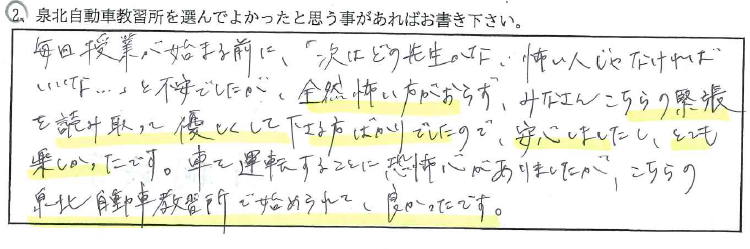 2、泉北自動車教習所を選んでよかったと思う事があればお書き下さい。
毎回授業が始まる前に、「次はどの先生かな、怖い人じゃなければ
いいな…」と不安でしたが、全然怖い方がおらず、みなさんこちらの緊張
を読み取って優しくして下さる方ばかりでしたので、安心しましたし、とても
楽しかったです。車で運転することに恐怖心がありましたが、こちらの
泉北自動車教習所で始められて、良かったです。